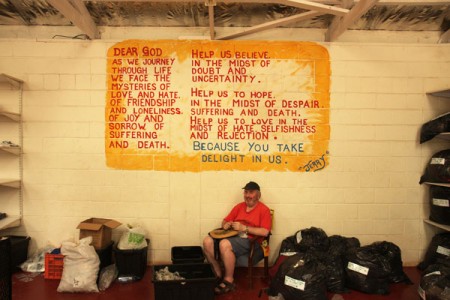 DEAR GOD
AS WE JOURNEY
THROUGH LIFE
WE FACE THE
MYSTERIES OF
LOVE AND HATE.
OF FRIENDSHIP
AND LONELINESS.
OF JOY AND
SORROW OF
SUFFERING
AND DEATH.
HELP US BELIEVE
IN THE MIDST OF
DOUBT AND
UNCERTAINTY.
HELP US TO HOPE.
IN THE MIDST OF DESPAIR
SUFFERING AND DEATH.
HELP US TO LOVE IN THE
MIDST OF HATE, SELFISHNESS
AND REJECTION.
BECAUSE YOU TAKE
DELIGHT IN US.